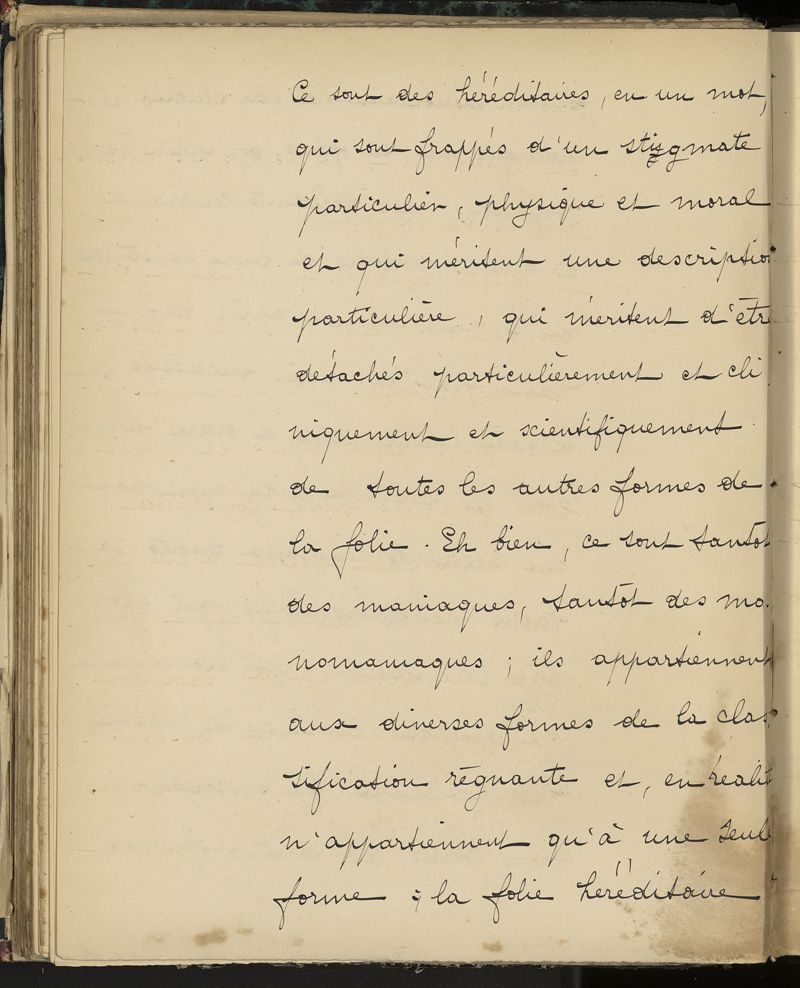 Ce sont des héréditaires, en un mot,
qui sont frappés d'un stigmate
particulier, physique et moral
et qui méritent une description
particulière, qui méritent d'être
détachés particulièrement et cli
niquement et scientifiquement
de toutes les autres formes de
la folie. Eh bien, ce sont tantôt
des maniaques, tantôt des mo-
nomamaques ; ils appartiennent
aux diverses formes de la clas
sification régnante et, en réalit
n'appartiennent qu'à une seule
forme ; la folie héréditaire